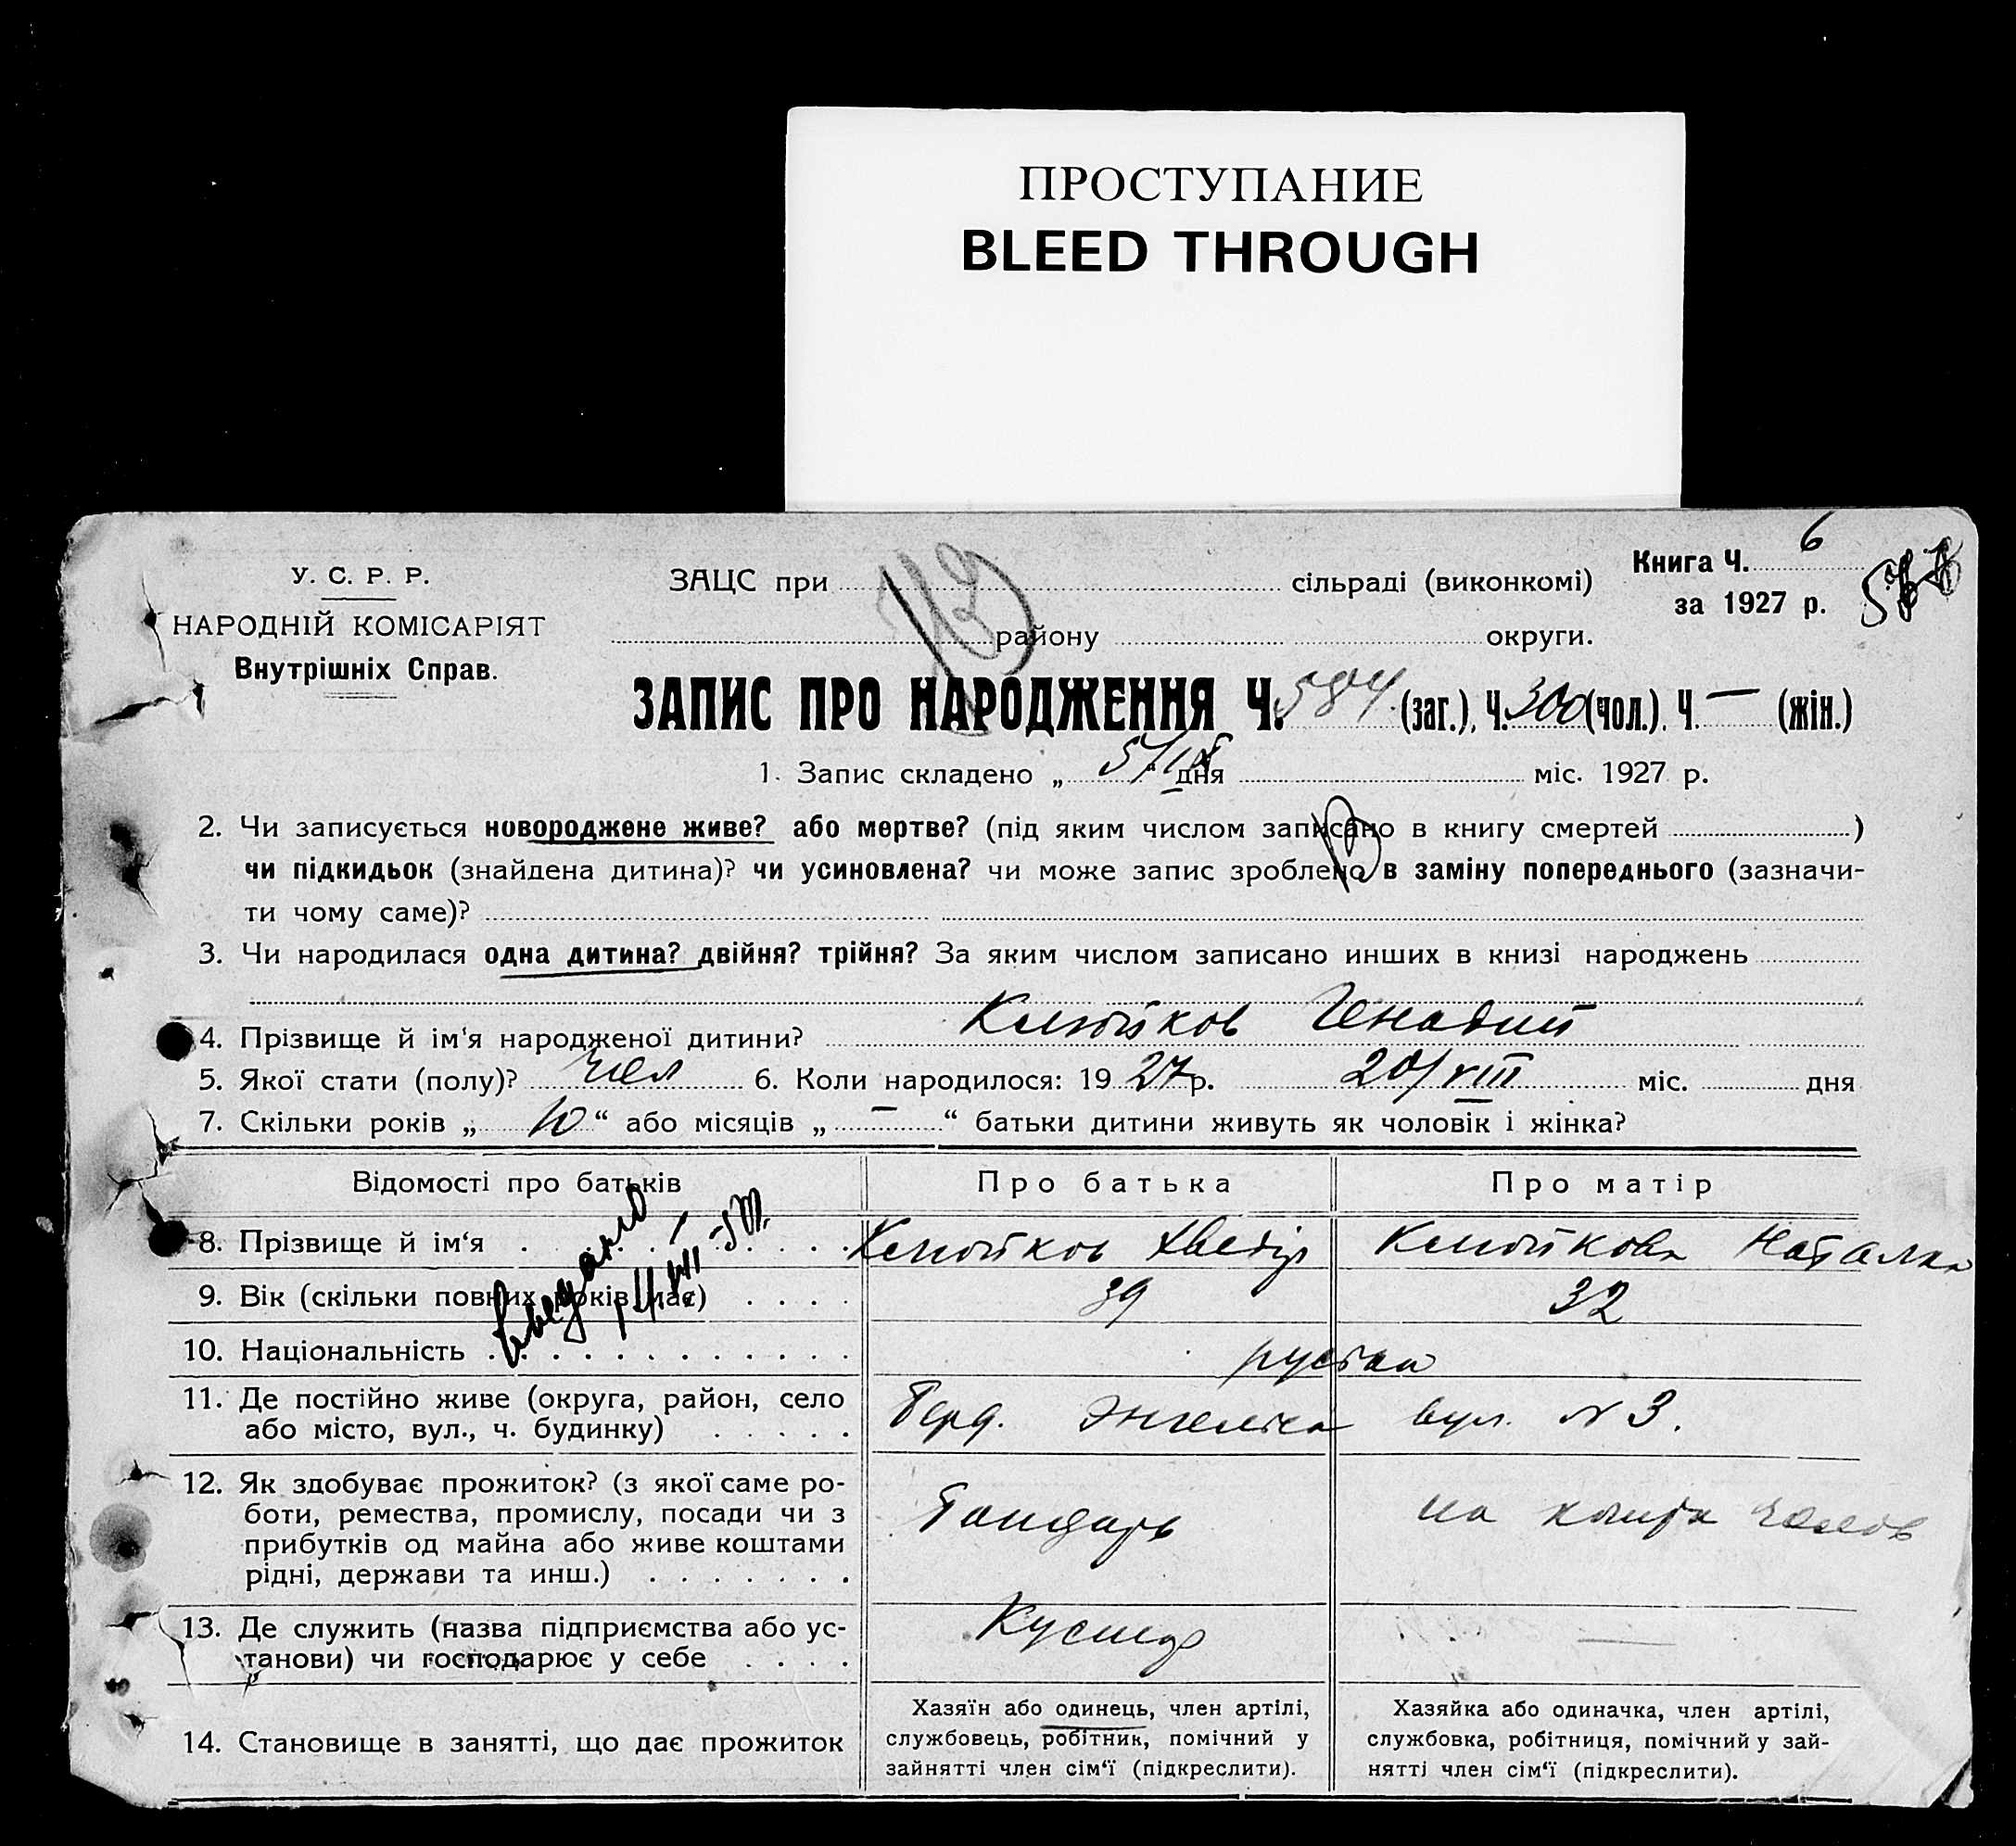 ПРОСТУПАНИЕ
BLEED THROUGH
У. С. Р. Р.
НАРОДНІЙ КОМІСАРІЯТ
Внутрішніх Справ.
ЗАЦС при сільраді (виконкомі)
району округи.
Книга Ч. 6
за 1927 р.
ЗАПИС ПРО НАРОДЖЕННЯ Ч. 584. (заг.), Ч. 300 (чол.), Ч. — (жін.)
1. Запис складено „ 5/IX “ дня міс. 1927 р.
2. Чи записується новороджене живе? або мертве? (під яким числом записано в книгу смертей )
чи підкидьок (знайдена дитина)? чи усиновлена? чи може запис зроблено в заміну попереднього (зазначи-
ти чому саме)?
3. Чи народилася одна дитина? двійня? трійня? За яким числом записано инших в книзі народжень
4. Прізвище й ім‘я народженої дитини? Генадий
5. Якої стати (полу)? чол 6. Коли народилося: 1927 р. 20/VIII міс. дня
7. Скільки років „ 10 “ або місяців „ — “ батьки дитини живуть як чоловік і жінка?
Відомості про батьків Про батька Про матір
8. Прізвище й ім‘я Хведір Наталка
9. Вік (скільки повних років має) 39 32
10. Національність
11. Де постійно живе (округа, район, село
або місто, вул., ч. будинку) Берд. Энгельса вул. N 3.
12. Як здобуває прожиток? (з якої саме ро-
боти, ремества, промислу, посади чи з
прибутків од майна або живе коштами
рідні, держави та инш.) Бондарь на кошти чолов
13. Де служить (назва підприємства або ус-
танови) чи господарює у себе Кустар —
14. Становище в занятті, що дає прожиток
Хазяїн або одинець, член артілі,
службовець, робітник, помічний у
зайнятті член сім‘ї (підкреслити).
Хазяйка або одиначка, член артілі,
службовка, робітниця, помічний у зай-
нятті член сім‘ї (підкреслити).